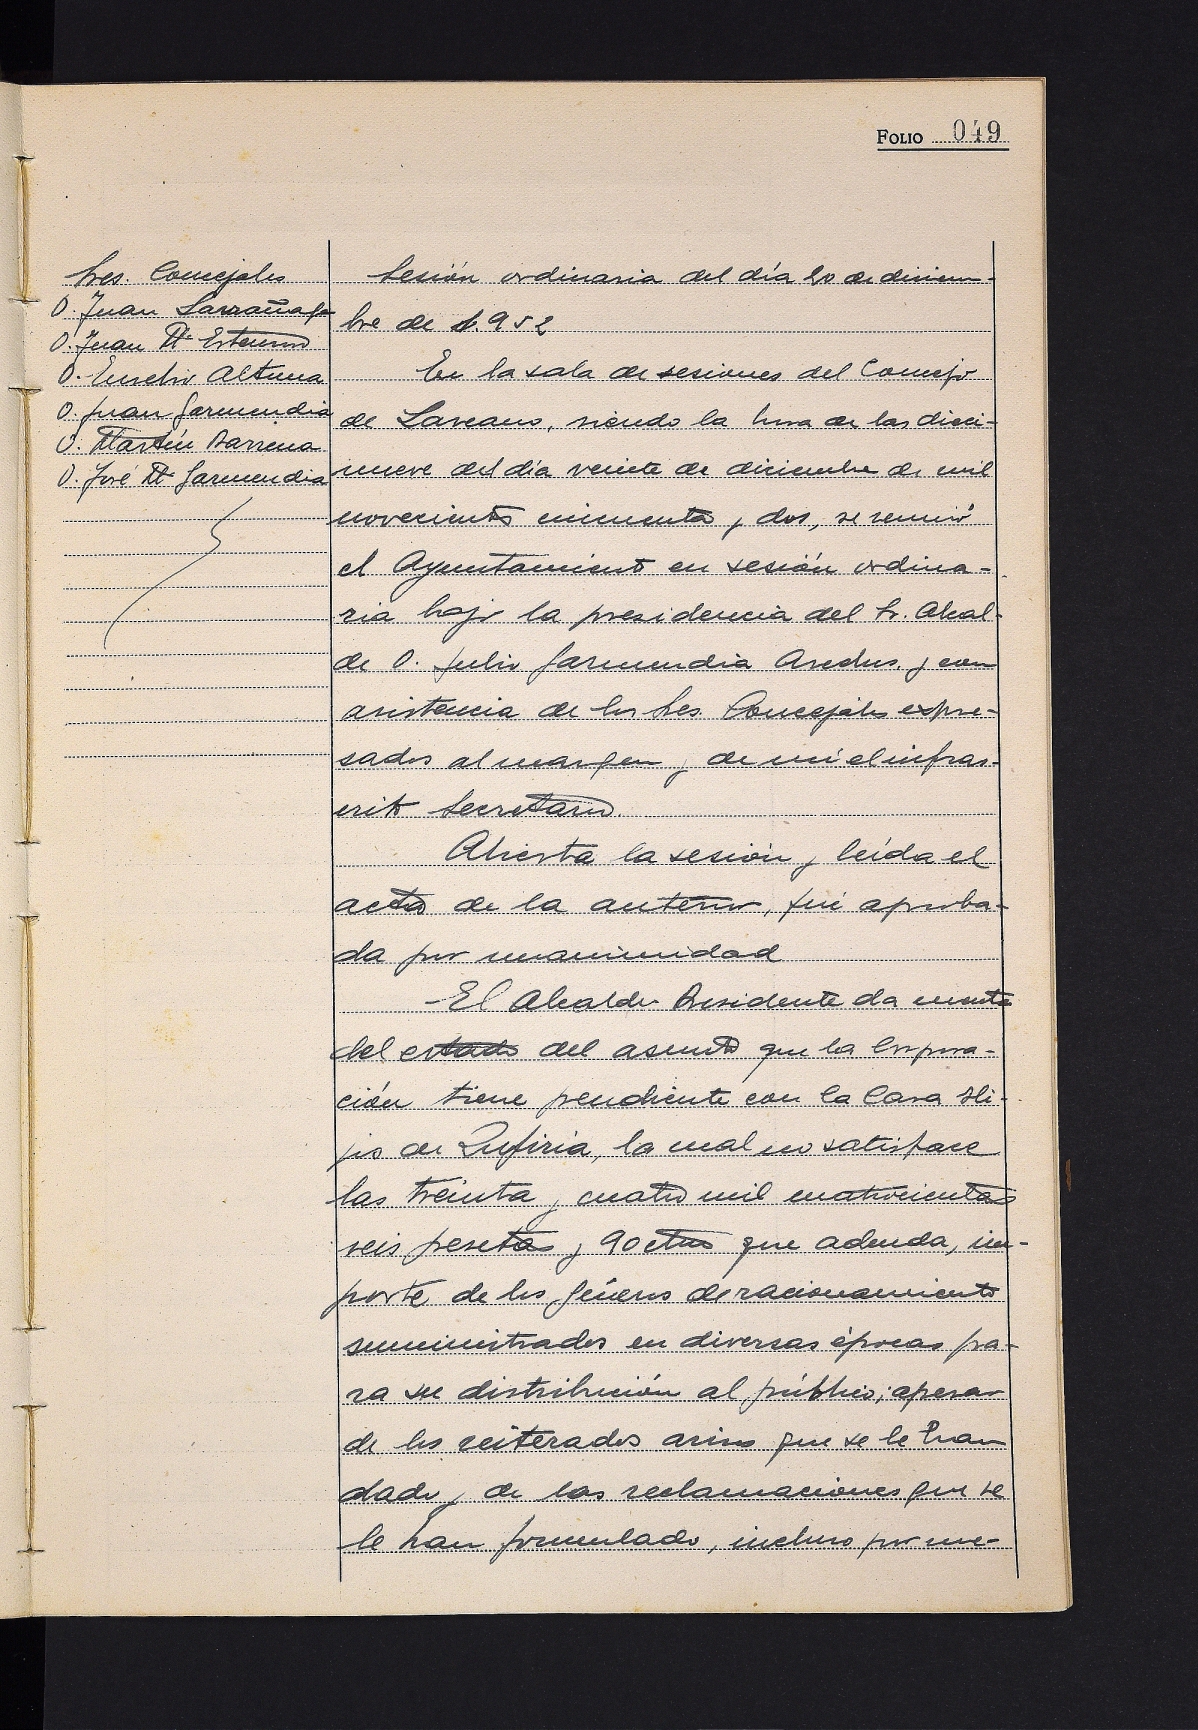 FOLIO 049
Sres. Concejales
D. Juan Larrañaga
D. Juan Mª Estensoro
D. Eusebio Altuna
D. Juan Garmendia
D. Martín Barrena
D. José Mª Garmendia
Sesión ordinaria del día 20 de diciem-
bre de 1.952
En la sala de sesiones del Concejo
de Larcano, siendo la hora de las dieci-
nueve del día veinte de diciembre de mil
novecientos cincuenta y dos, se reunió
el Ayuntamiento en sesión ordina-
ria bajo la presidencia del Sr. Alcal-
de D. Julio Garmendia y con
asistencia de los Sres. Concejales expre-
sados al margen y de mi el infras-
crito Secretario.
Abierta la sesión y leída el
acta de la anterior, fué aproba-
da por unanimidad
- El Alcalde Presidente da cuenta
del estado del asunto que la Corpora-
ción tiene pendiente con la Casa Hi-
jos de Zufiria, la cual no satisface
las treinta y cuatro mil cuatrocientas
seis pesetas y 90 ctms que adeuda, im-
porte de los géneros de racionamiento
suministrados en diversas épocas pa-
ra su distribución al público; apesar
de los reiterados avisos que se le han
dado y de las reclamaciones que se
le han formulado, incluso por me-